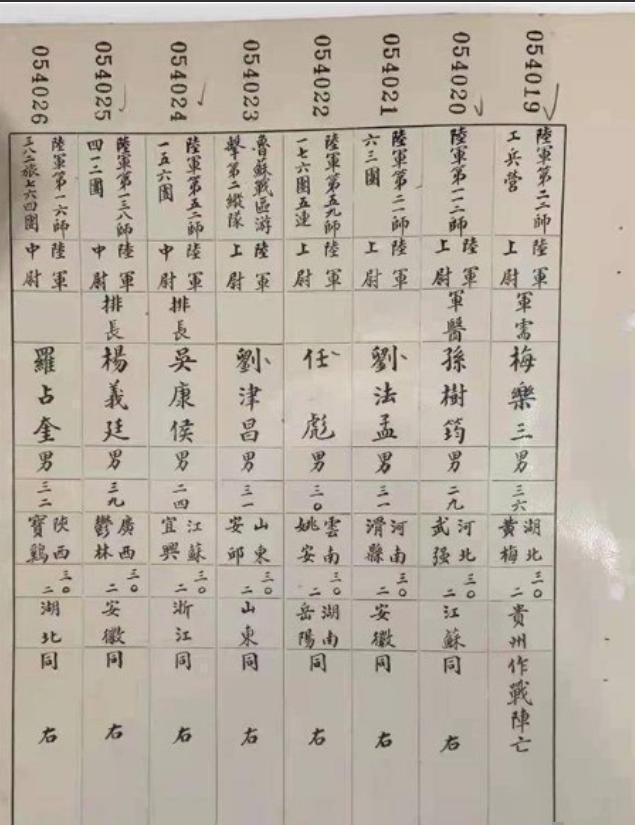 054019 陸軍第二二師工兵營 陸軍上尉 軍需 梅樂三 男 三六 湖北黃梅 三〇 二 貴州 作戰陣亡
054020 陸軍第一一二師 陸軍上尉 軍醫 孫樹筠 男 二九 河北武强 三〇 二 江蘇 同右
054021 陸軍第二一師六三團 陸軍上尉 劉法孟 男 三一 河南滑縣 三〇 二 安徽 同右
054022 陸軍第五九師一七六團五連 陸軍上尉 任彪 男 三〇 雲南姚安 三〇 二 湖南岳陽 同右
054023 魯蘇戰區游擊第二縱隊 陸軍上尉 劉津昌 男 三一 山東安邱 三〇 二 山東 同右
054024 陸軍第五二師一五六團 陸軍中尉 排長 吳康侯 男 二四 江蘇宜興 三〇 二 浙江 同右
054025 陸軍第一三八師四一二團 陸軍中尉 排長 楊義廷 男 三九 廣西鬱林 三〇 二 安徽 同右
054026 陸軍第一六師三八二旅七六四團 陸軍中尉 羅占奎 男 三二 陝西寶鷄 三〇 二 湖北 同右